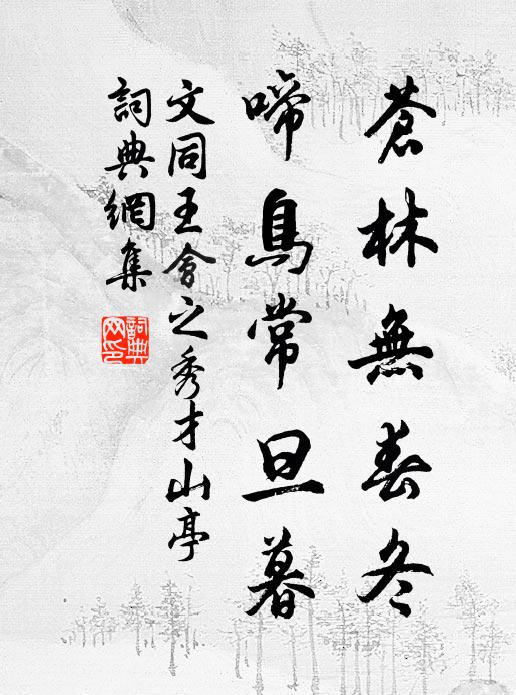 蒼林無春冬
啼鳥常旦暮
文同王會之秀才山亭
詞典網集
詞典网印